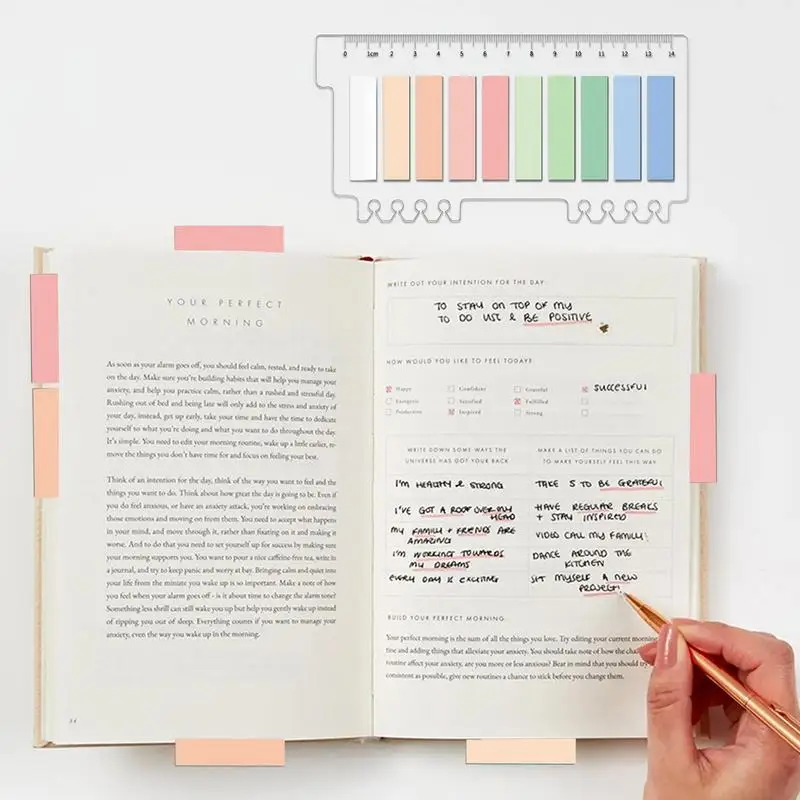 0 1cm 2 3 4 5 6 7 8 9 10 11 12 13 14
YOUR PERFECT
MORNING
As soon as your alarm goes off, you should feel calm, rested, and ready to take
on the day. Make sure you're building habits that will help you manage your
anxiety, and help you practice calm, rather than a rushed and stressful day.
Rushing out of bed and being late will only add to the stress and anxiety of
your day, instead, get up early, take your time and have the time to dedicate
yourself to what you're doing and what you want to do throughout the day.
It's simple. You need to edit your morning routine, wake up a little earlier, re-
move the things you don't have time for and focus on feeling your best.
Think of an intention for the day, think of the way you want to feel and the
things you want to do. Think about how great the day is going to be. Even if
you do feel anxious, or have an anxiety attack, you're working on embracing
those emotions and moving on from them. You need to accept what happens
in your mind, and move through it, rather than fixating on it and making it
worse. And to do that you need to set yourself up for success by making sure
your morning supports you. You want to pour a nice caffeine-free tea, write in
a journal, and try to keep panic and worry at bay. Bringing calm and quiet into
your life from the minute you wake up is so important. Make a note of how
you feel when your alarm goes off - is it about time to change the alarm tone?
Something less shrill can still wake you up but help you gently wake up instead
of ripping you out of sleep. Everything counts if you want to manage your
anxiety, even the way you wake up in the morning.
34
WRITE OUT YOUR INTENTION FOR THE DAY:
TO STAY ON TOP OF MY
TO DO LIST & BE POSITIVE
HOW WOULD YOU LIKE TO FEEL TODAY?
Happy Confident Grateful SUCCESSFUL
Energetic Satisfied Fulfilled
Productive Inspired Strong
WRITE DOWN SOME WAYS THE
UNIVERSE HAS GOT YOUR BACK
MAKE A LIST OF THINGS YOU CAN DO
TO MAKE YOURSELF FEEL THIS WAY
I'M HEALTHY & STRONG
TAKE 5 TO BE GRATEFUL
I'VE GOT A ROOF OVER MY
HEAD
HAVE REGULAR BREAKS
+ STAY INSPIRED
MY FAMILY + FRIENDS ARE
AMAZING
VIDEO CALL MY FAMILY!
I'M WORKING TOWARDS
MY DREAMS
DANCE AROUND THE
KITCHEN
EVERY DAY IS EXCITING
SET MYSELF A NEW
PROJECT!
BUILD YOUR PERFECT MORNING:
Your perfect morning is the sum of all the things you love. Try editing your current morning
tine and adding things that alleviate your anxiety. You should take note of how the
routine affect your anxiety, are you more or less anxious? Bear in mind that you should try
consistent as possible, give new routines a chance to stick before you change them.